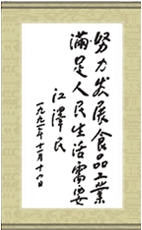 努力发展食品工业
满足人民生活需要
江泽民
一九九二年十二月十六日